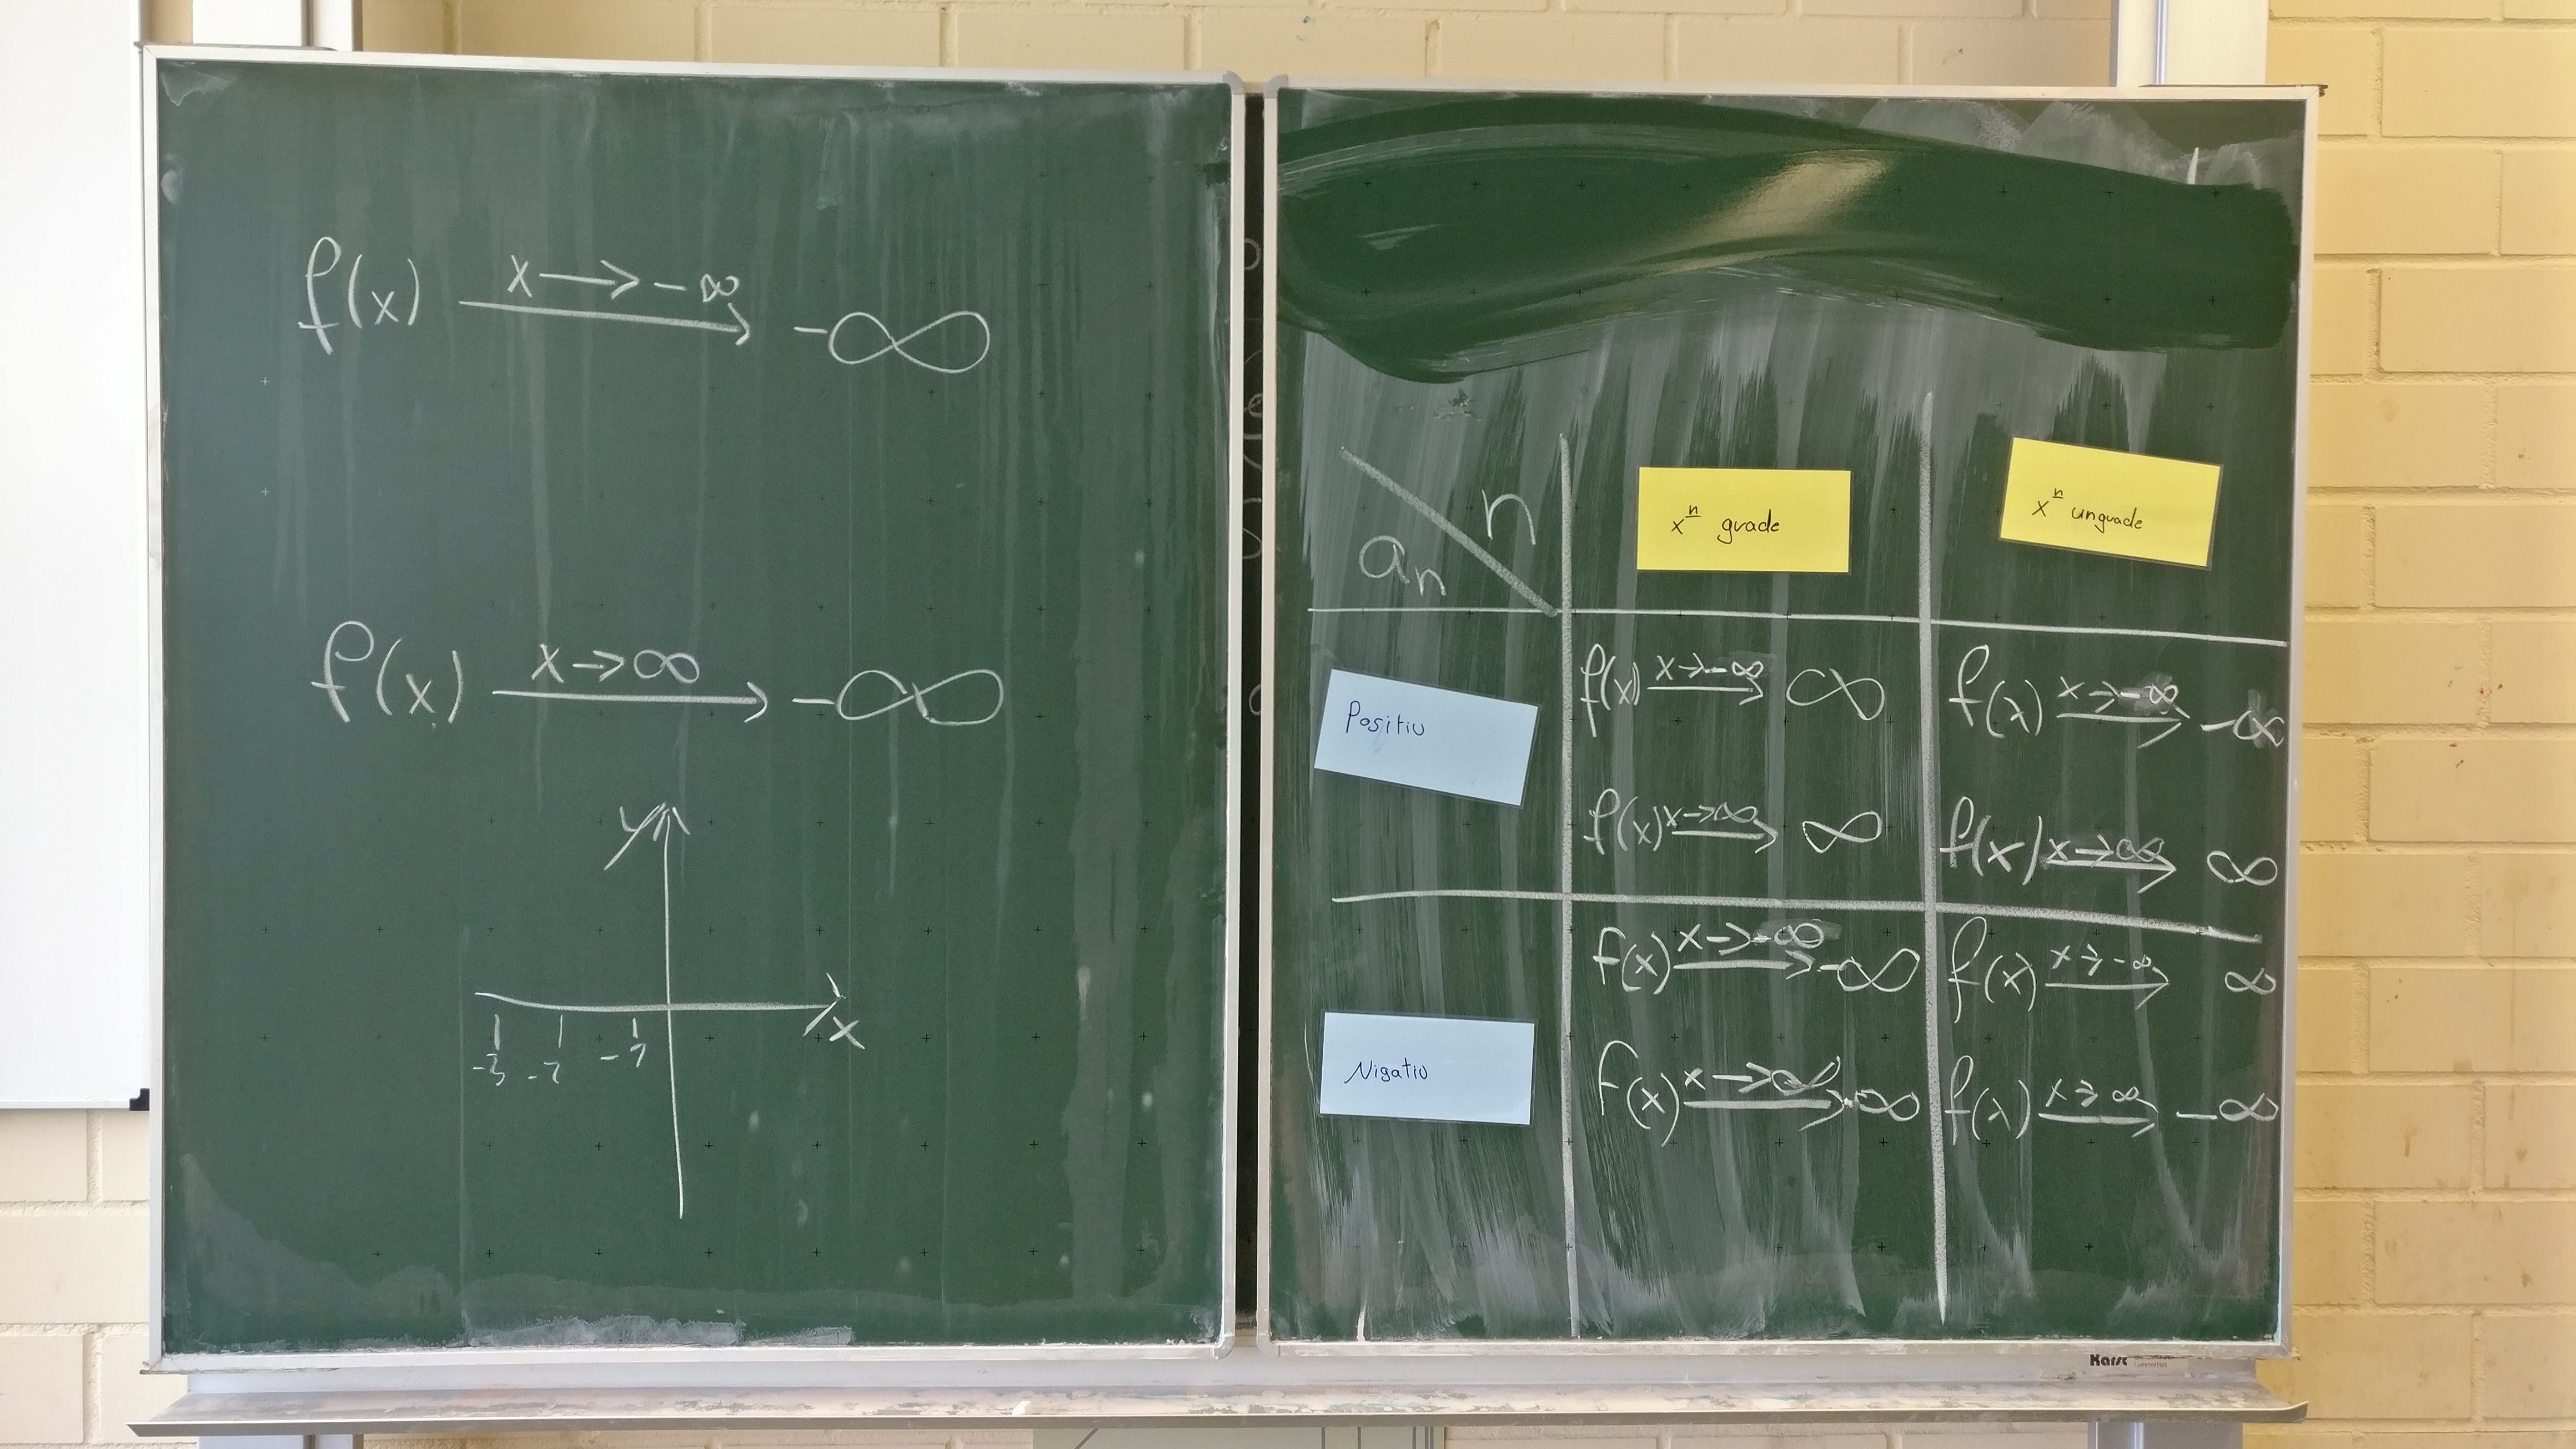 f(x) x→-∞ -∞
f(x) x→∞ -∞
y
x
-3 -2 -1
n
aₙ
xⁿ grade
xⁿ ungrade
Positiv
f(x) x→-∞ ∞
f(x) x→-∞ -∞
f(x) x→∞ ∞
f(x) x→∞ ∞
Nigativ
f(x) x→-∞ -∞
f(x) x→-∞ ∞
f(x) x→∞ -∞
f(x) x→∞ -∞
Karst